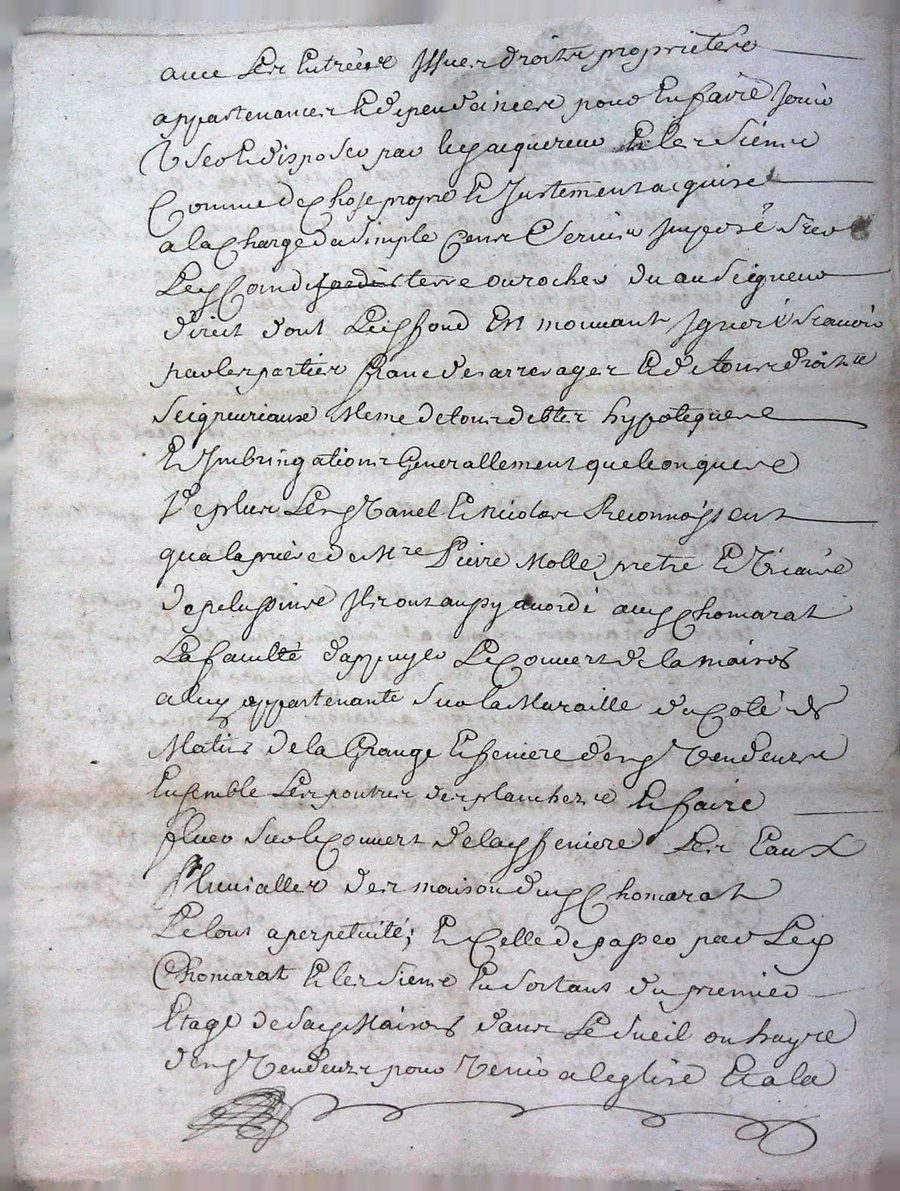 avec Les Entrées Issues droits proprietés
appartenances & dependances pour En faire Jouir
User & disposer par led acquereur & les Siens
Comme de Chose propre & Justement acquise
a la Charge du Simple Cens & Servis Imposé sur
Led Coin de Jardin terre ou rocher du au Seigneur
direct dont Led fond Est mouvant Ignoré Scavoir
par les parties franc des arrerages & de tous droits
Seigneuriaux Meme de tous debtes hypoteques
& Imbringations Generallement quelconques
De plus Lesd Tavel & Nicolas Reconnoissent
qu'a la priere de Mre Pierre Molle pretre & Vicaire
de pelussin Ils ont aussy acordé aud Chomarat
La faculté d'appuyer Le Couvert de la maison
a luy appartenante Sur la Muraille du Coté de
Matin de la Grange & feniere desd Vendeurs
Ensemble Les poutres des planchers & faire
fluer Sur le Couvert de lad feniere Les Eaux
pluvialles des maison dud Chomarat
Le tout a perpetuité; & Celle de passer par Led
Chomarat & les Siens En Sortant du premier
Etage de Sad Maison dans Le Sueil ou hayre
desd Vendeurs pour Venir a leglise & a la